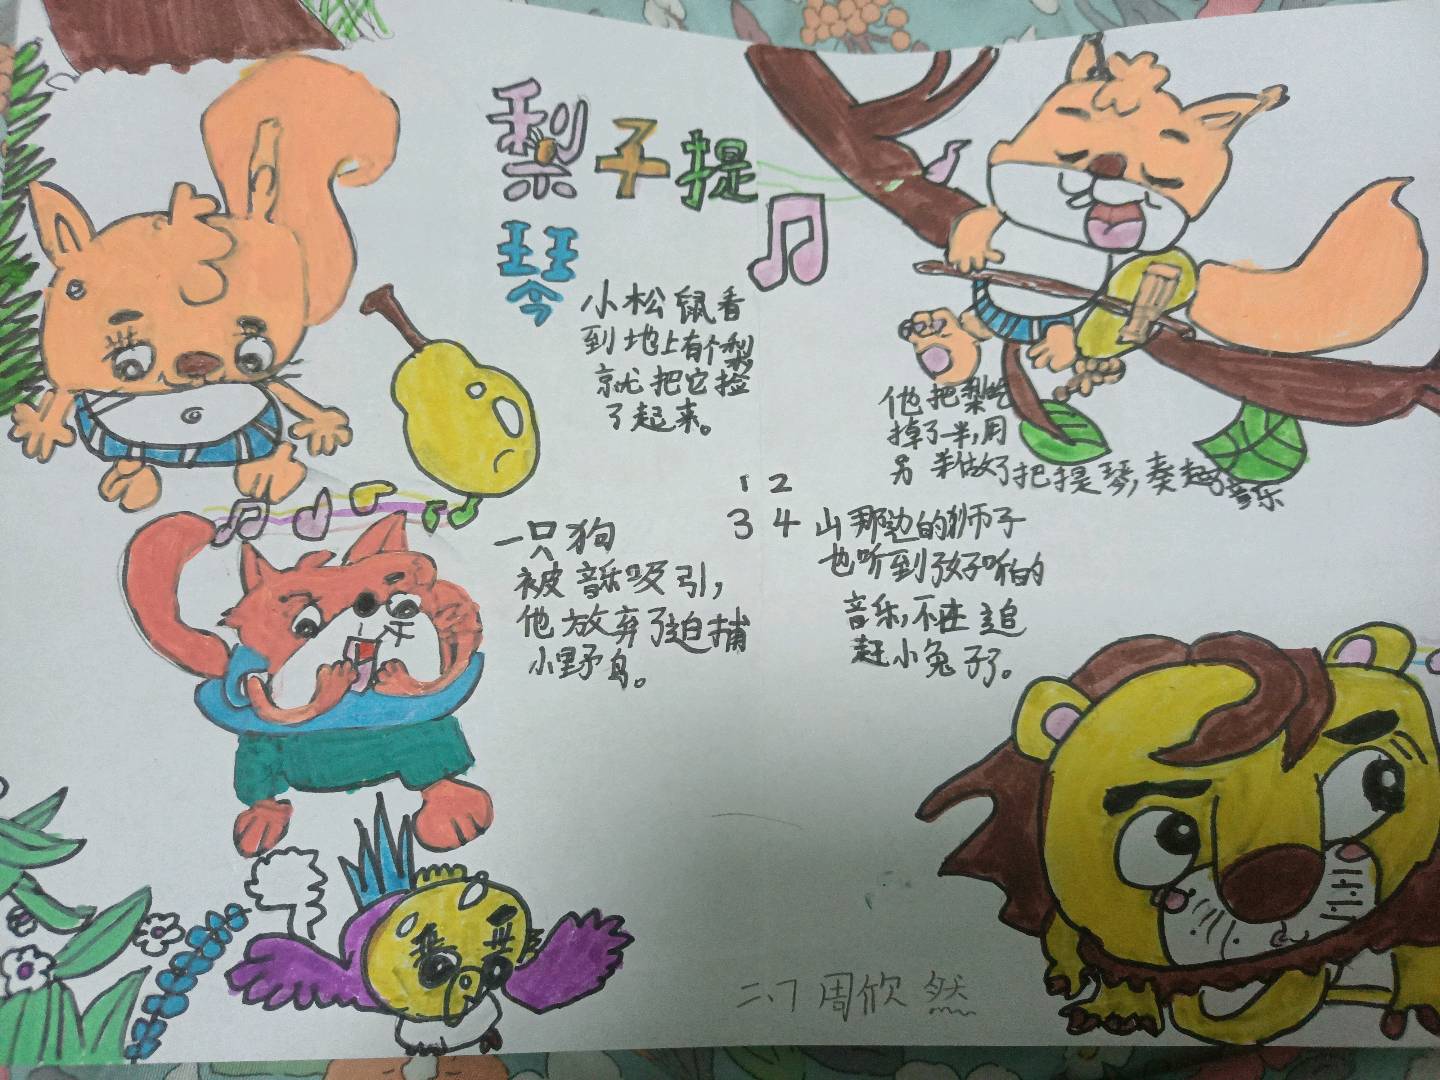 梨子提
琴
小松鼠看
到地上有个梨
就把它捡
了起来。
他把梨吃
掉了一半,用
另一半做好了把提琴,奏起了音乐
1 2
3 4
一只狗
被音乐吸引,
他放弃了追捕
小野鸟。
山那边的狮子
也听到了好听的
音乐,不在追
赶小兔子了。
二、7 周欣然